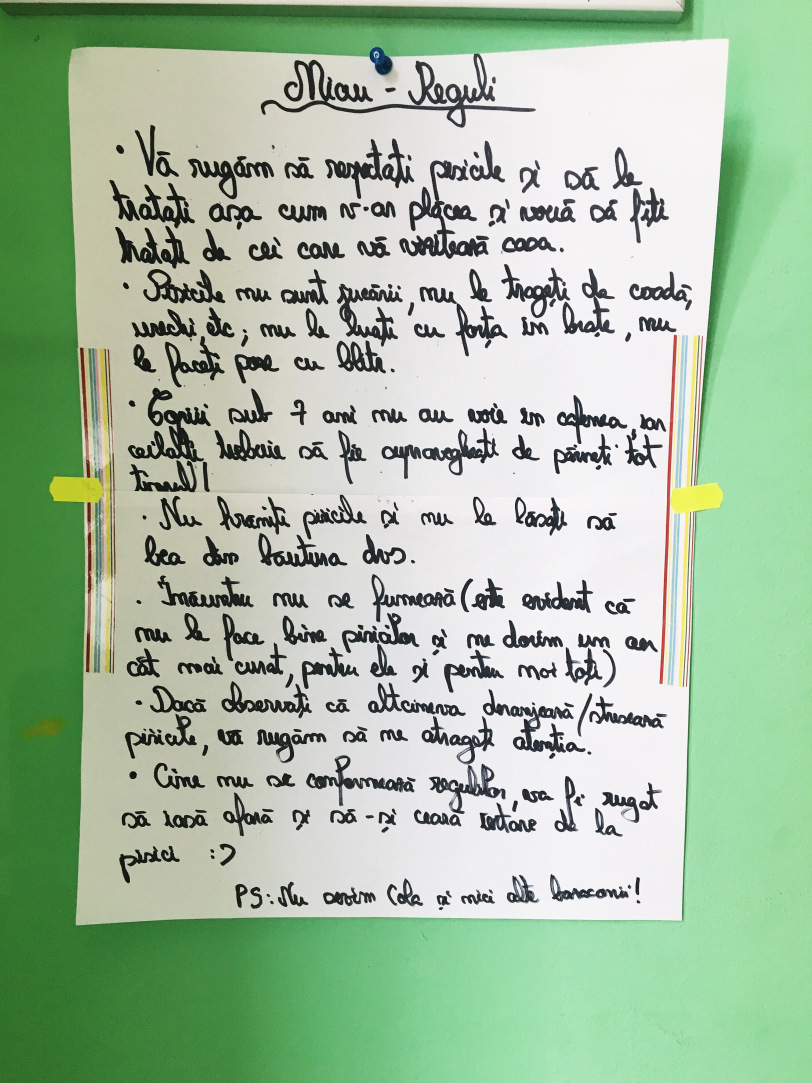 Miau - Reguli
• Vă rugăm să respectați pisicile și să le
tratați așa cum v-ar plăcea și vouă să fiți
tratați de cei care vă vizitează casa.
• Pisicile nu sunt jucării, nu le trageți de coadă,
urechi, etc; nu le luați cu forța în brațe, nu
le faceți poze cu blitz.
• Copiii sub 7 ani nu au voie in cafenea, iar
ceilalți trebuie să fie supravegheați de părinți tot
timpul!
• Nu hrăniți pisicile și nu le lăsați să
bea din bautura dvs.
• Înăuntru nu se fumează (este evident că
nu le face bine pisicilor și ne dorim un aer
cât mai curat, pentru ele și pentru noi toți)
• Dacă observați că altcineva deranjează/stresează
pisicile, vă rugăm să ne atrageți atenția.
• Cine nu se conformează regulilor, va fi rugat
să iasă afară și să-și ceară iertare de la
pisici :>
PS: Nu servim Cola și nici alte baraconii!